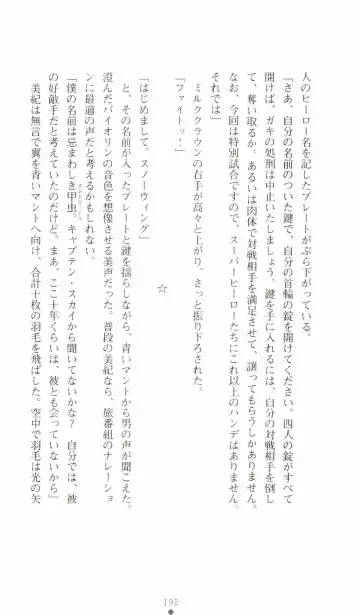 人のヒーロー名を記したプレートがぶら下がっている。
「さあ、自分の名前のついた鍵で、自分の首輪の錠を開けてください。四人の錠がすべて
開けば、ガキの処刑は中止いたしましょう。鍵を手に入れるには、自分の対戦相手を倒し
て、奪い取るか、あるいは肉体で対戦相手を満足させて、譲ってもらうしかありません。
なお、今回は特別試合ですので、スーパーヒーローたちにこれ以上のハンデはありません。
それでは」
ミルククラウンの右手が高々と上がり、さっと振り下ろされた。
「ファイトッ！」
☆
「はじめまして。スノーウィング」
と、その名前が入ったプレートと鍵を揺らしながら、青いマントから男の声が聞こえた。
澄んだバイオリンの音色を想像させる美声だった。普段の美紀なら、旅番組のナレーショ
ンに最適の声だと考えるかもしれない。
「僕の名前は忌まわしき甲虫。キャプテン・スカイから聞いてないかな？　自分では、彼
の好敵手だと考えていたのだけど。まあ、ここ十年くらいは、彼とも会っていないから」
美紀は無言で翼を青いマントへ向け、合計十枚の羽毛を飛ばした。空中で羽毛は光の矢
192